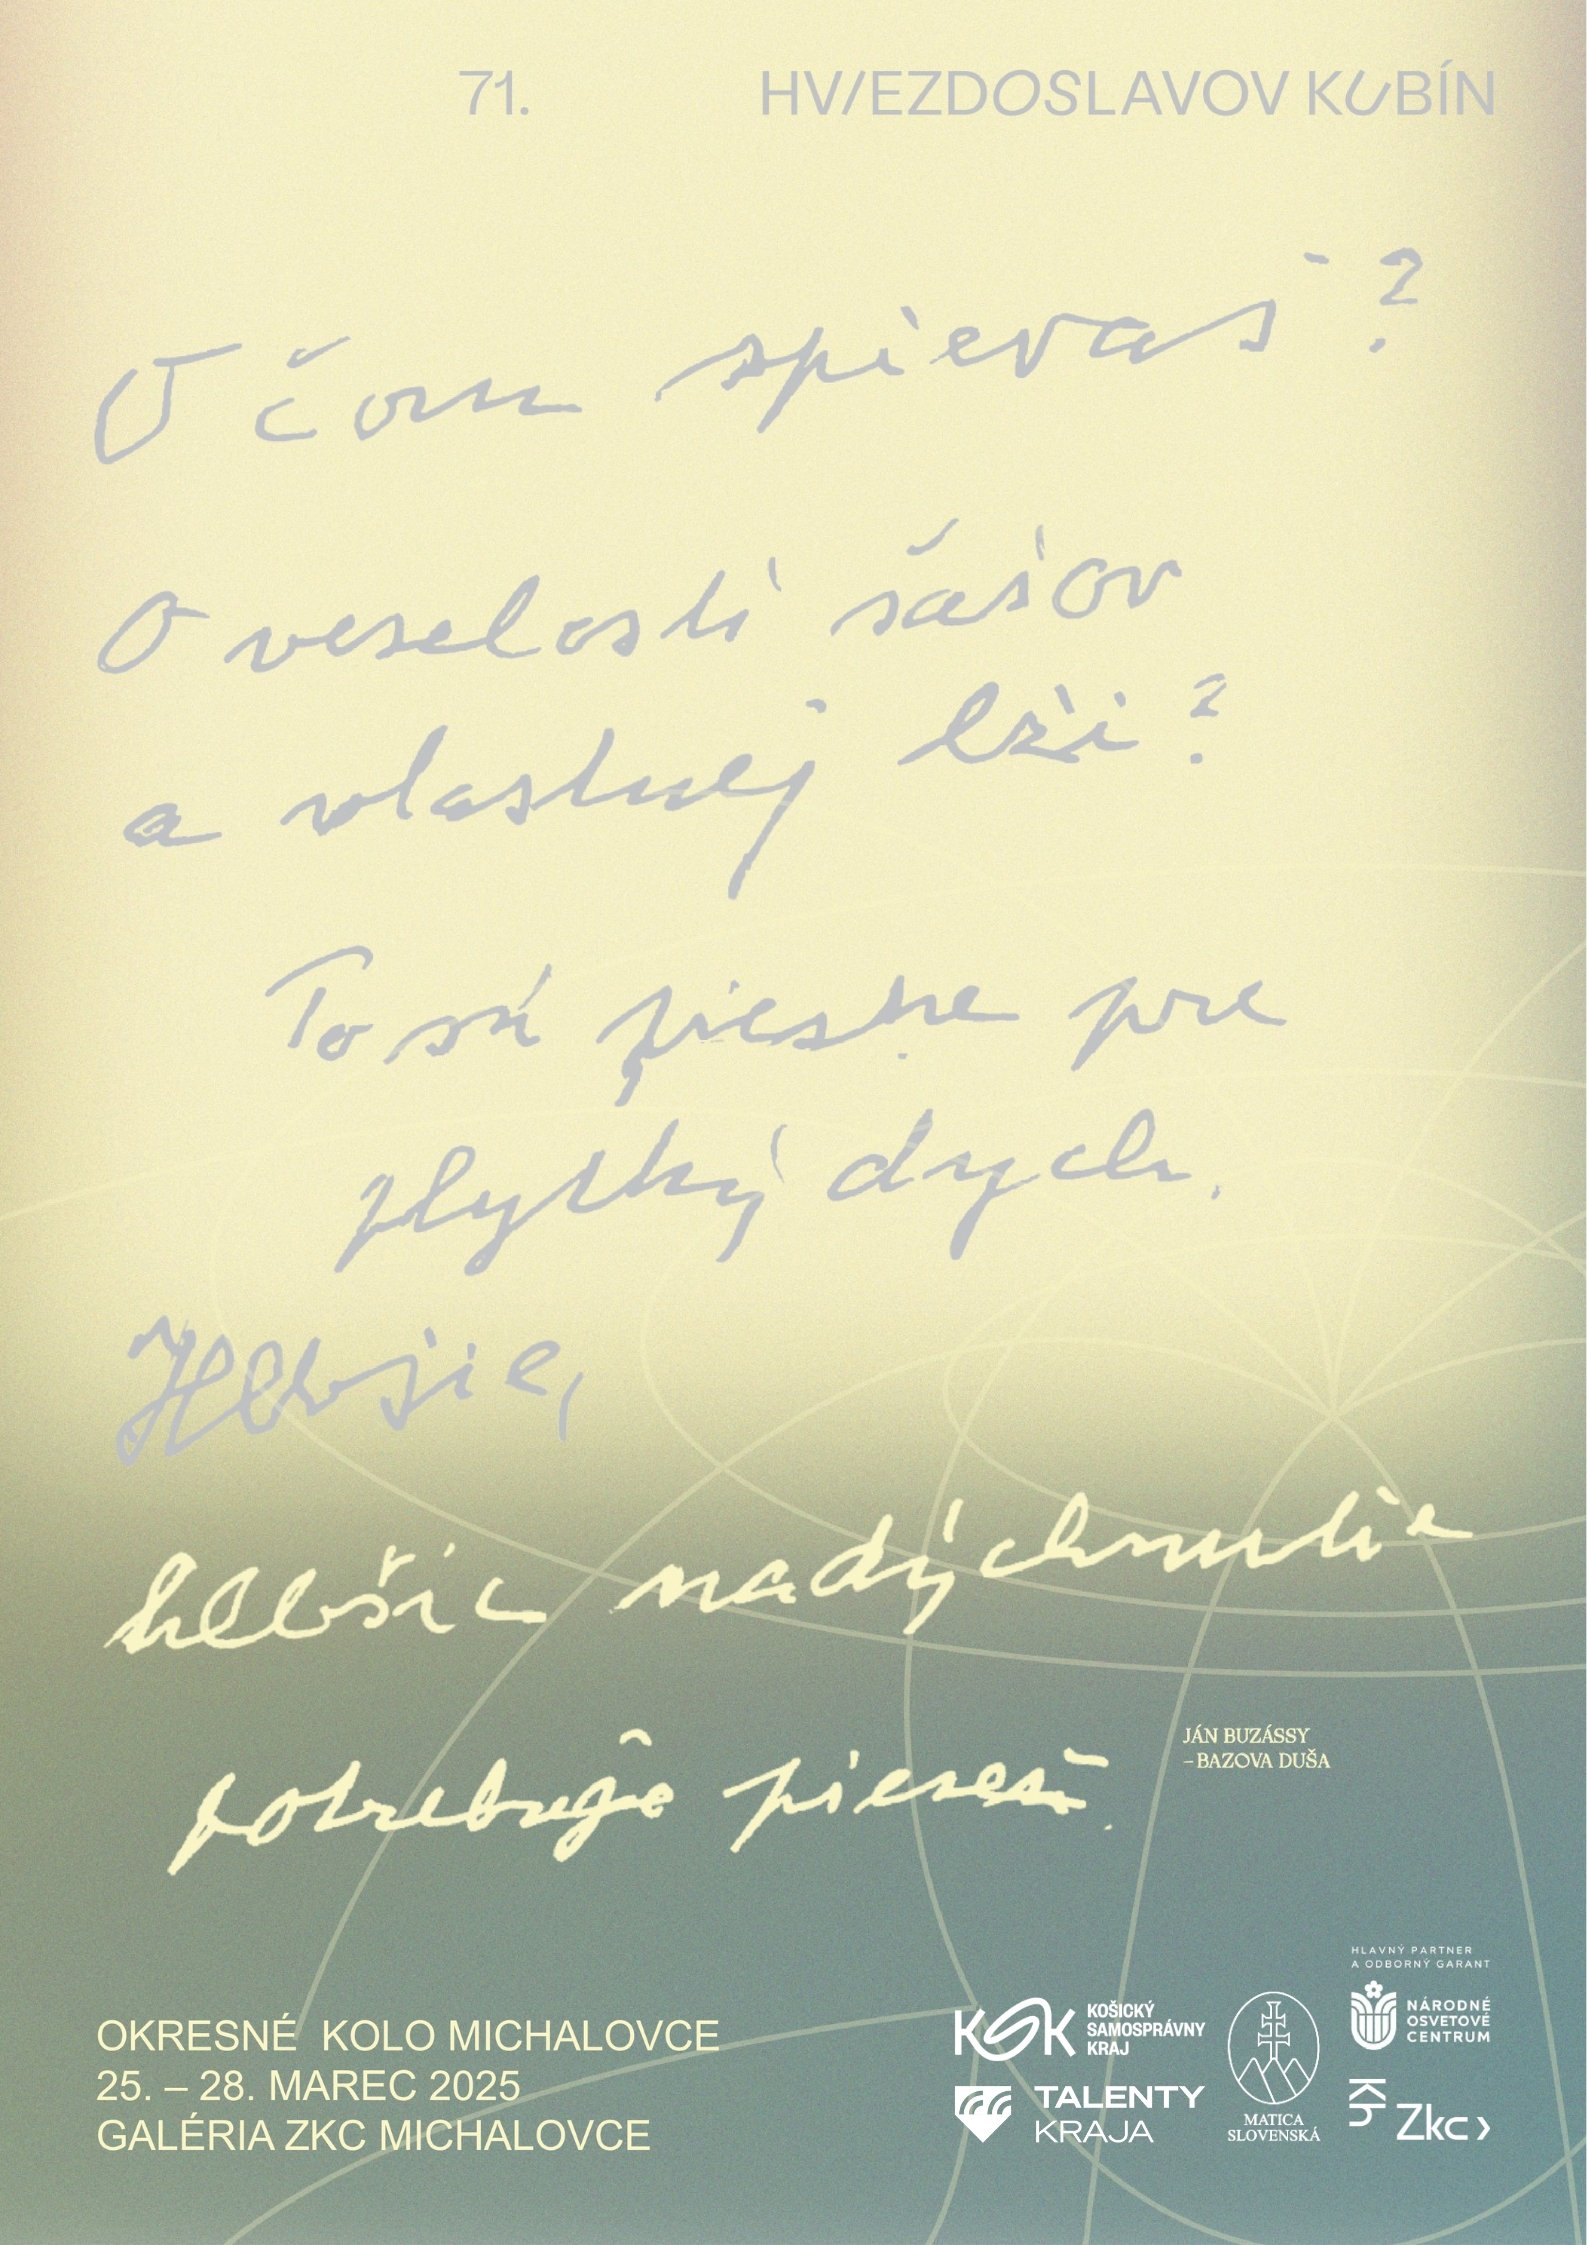 71. HVIEZDOSLAVOV KUBÍN
O čom spievaš?
O veselosti šašov
a vlastnej lži?
To sú piesne pre
plytký dych.
Hlbšie,
hlbšie nadýchnutie
potrebuje pieseň.
JÁN BUZÁSSY
– BAZOVA DUŠA
HLAVNÝ PARTNER
A ODBORNÝ GARANT
NÁRODNÉ
OSVETOVÉ
CENTRUM
KSK KOŠICKÝ
SAMOSPRÁVNY
KRAJ
TALENTY
KRAJA
MATICA
SLOVENSKÁ
Zkc
OKRESNÉ KOLO MICHALOVCE
25. – 28. MAREC 2025
GALÉRIA ZKC MICHALOVCE